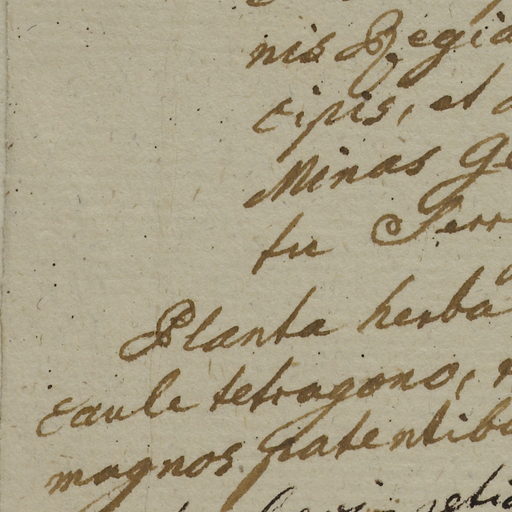 nis Regia
cipis, et
Minas Ge
tu Serr
Planta herba
caule tetragono,
magnos patentibu